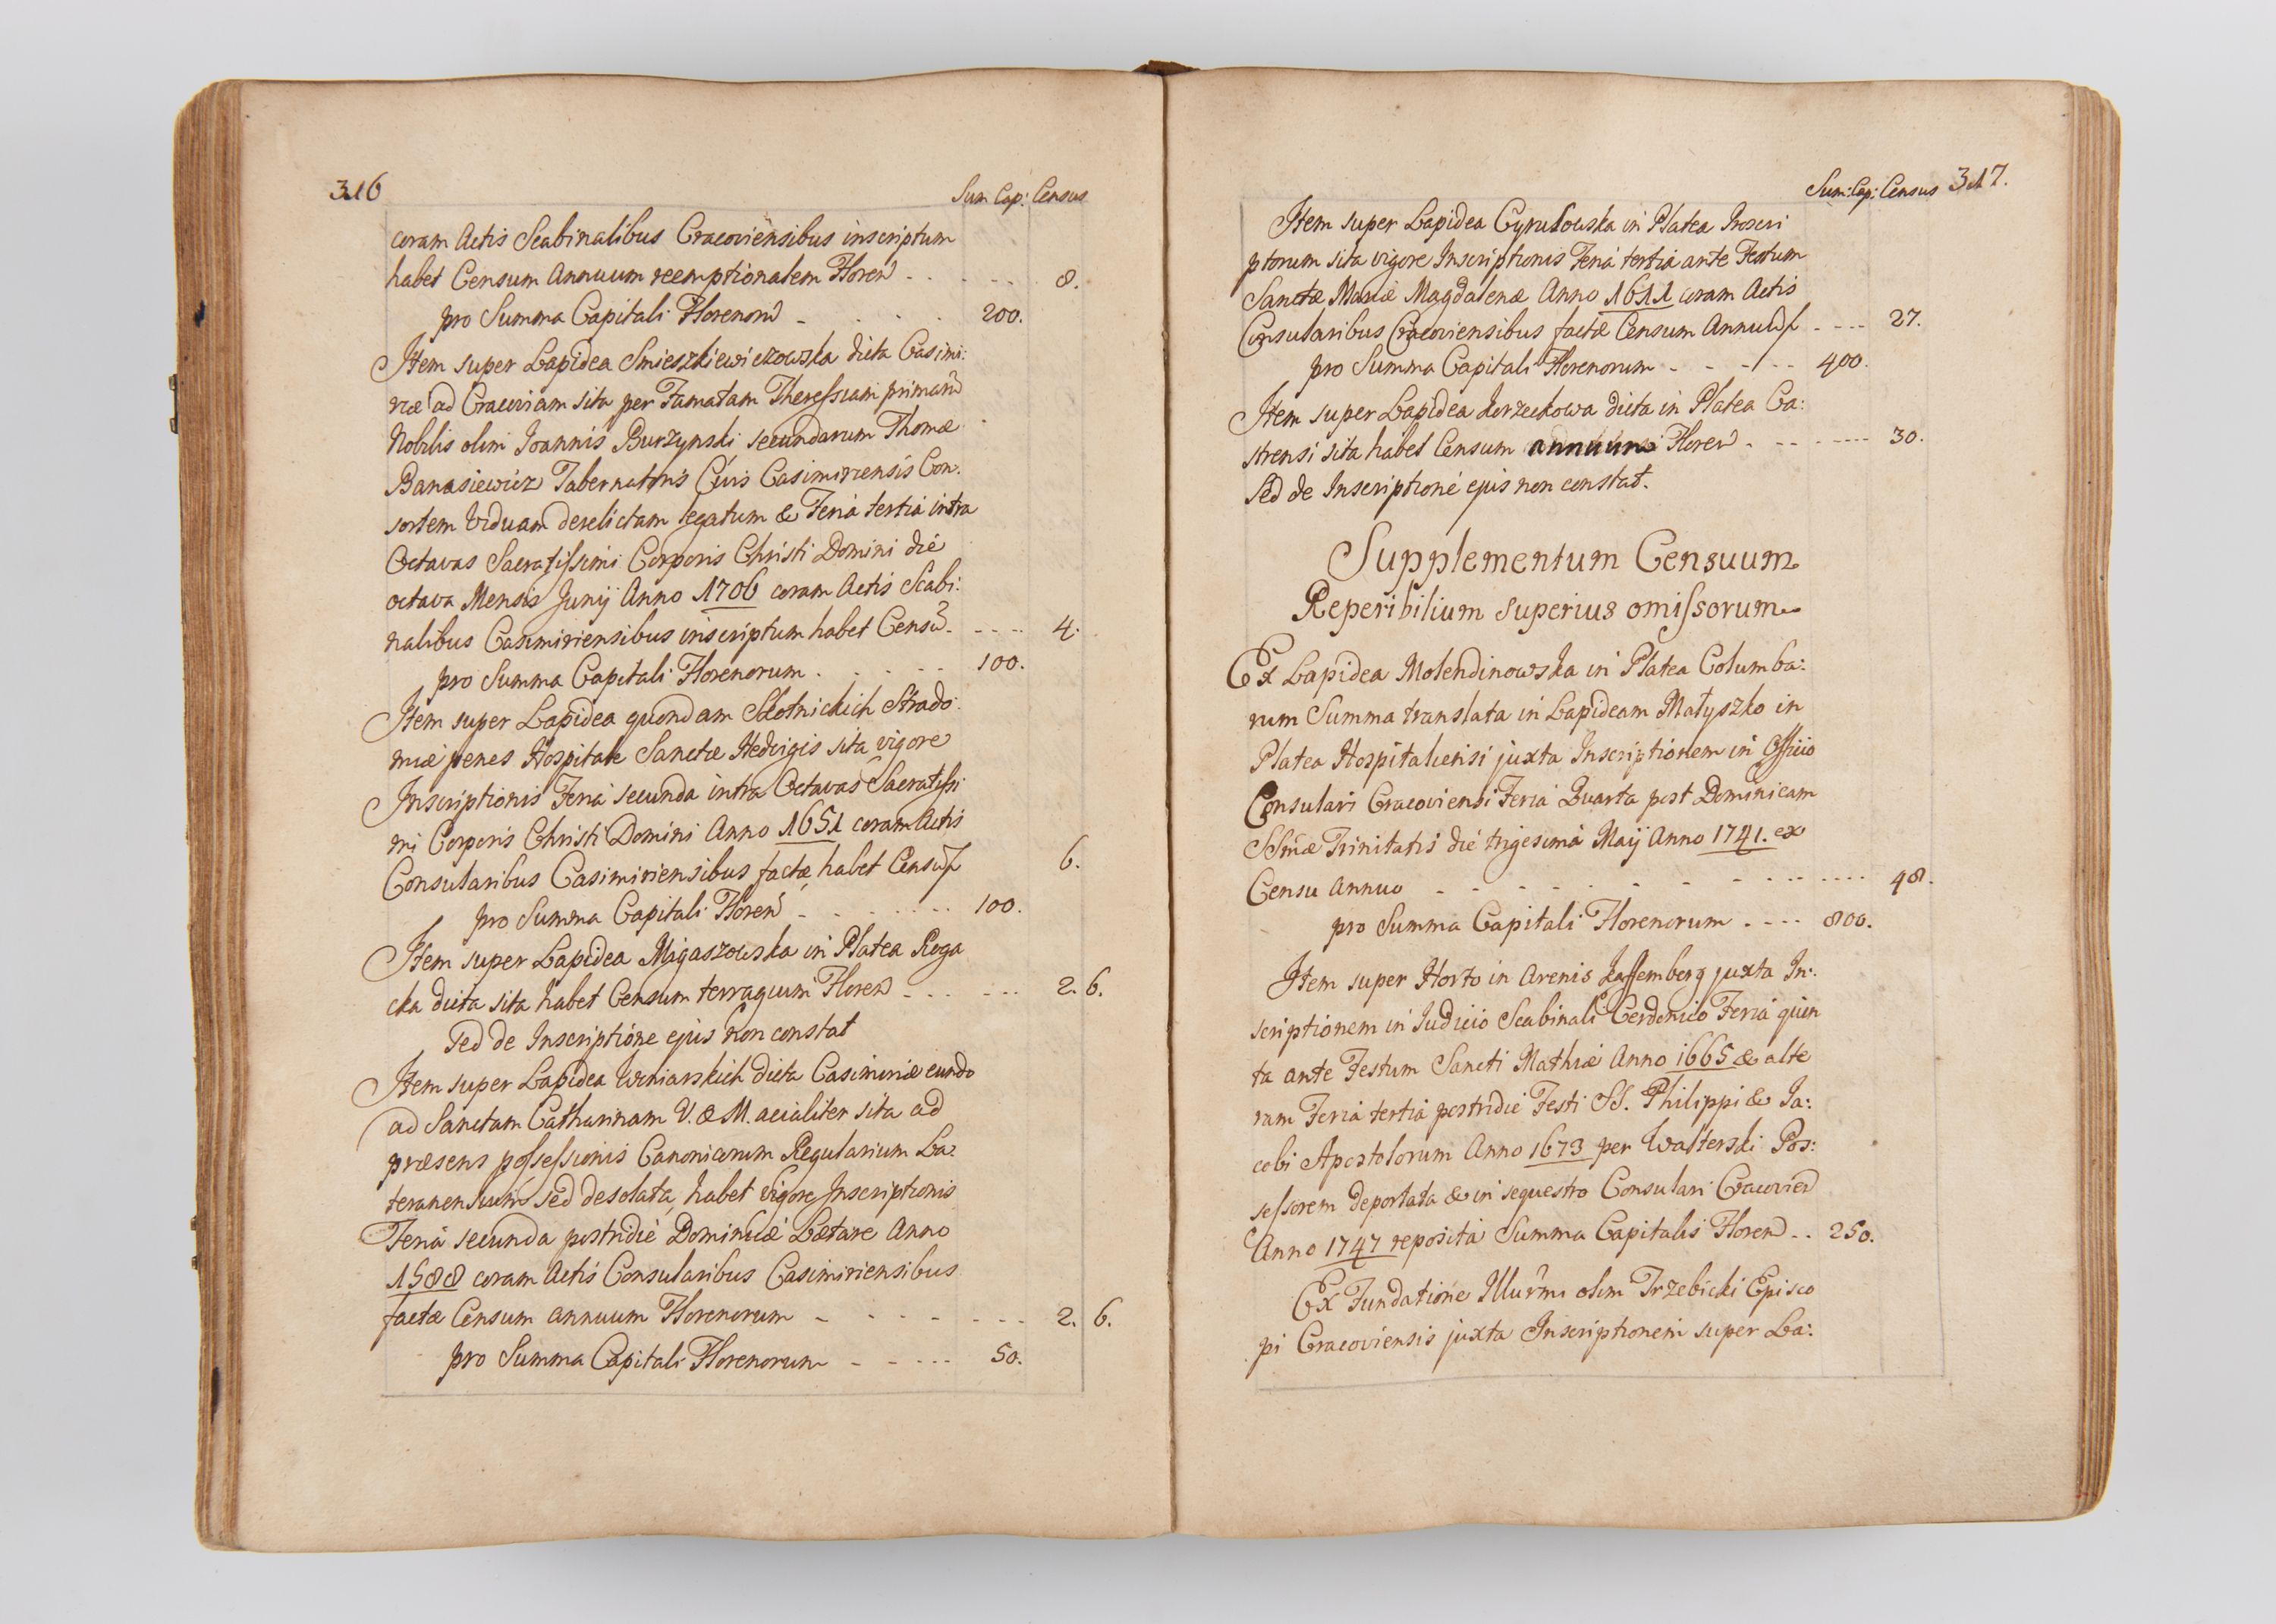 316
Sum Cap: Census
coram Actis Scabinalibus Cracoviensibus inscriptum
habet Censum Annuum reemptionalem Floren̄ - - - - - 8.
pro Summa Capitali Florenorū - - - - 200.
Item super Lapidea Smieszkiewiczowska dicta Casimi:
riæ ad Cracoviam sita per Famatam Theressiam primarū
Nobilis olim Joannis Burzynski secundarum Thomæ
Banasiewicz Tabernatoris Civis Casimiriensis Con.
sortem Viduam derelictam legatum & Feria tertia intra
Octavas Sacratissimi Corporis Christi Domini die
octava Mensis Junij Anno 1706 coram Actis Scabi:
nalibus Casimiriensibus inscriptum habet Censū - - - - 4.
pro Summa Capitali Florenorum - - - - 100.
Item super Lapidea quondam Skotnickich Strado:
miæ penes Hospitale Sanctæ Hedvigis sita vigore
Inscriptionis Feria secunda intra Octavas Sacratissi
mi Corporis Christi Domini Anno 1651 coram Actis
Consularibus Casimiriensibus factæ habet Censū f 6.
pro Summa Capitali Floren̄ - - - - - - 100.
Item super Lapidea Migaszowska in Platea Roga
cka dicta sita habet Censum terragium Floren̄ - - - - - 2. 6.
Sed de Inscriptione ejus non constat
Item super Lapidea Winiarskich dicta Casimiriæ eundo
ad Sanctam Catharinam V. & M. acialiter sita ad
præsens possessionis Canonicorum Regularium La:
teranensium sed desolata, habet vigore Inscriptionis
Feria secunda postridie Dominicæ Lætare Anno
1588 coram Actis Consularibus Casimiriensibus
factæ Censum annuum Florenorum - - - - - - - 2. 6.
pro Summa Capitali Florenorum - - - - - 50.
Sum: Cap: Census 317.
Item super Lapidea Cyrulowska in Platea Proscri
ptorum sita vigore Inscriptionis Feria tertia ante Festum
Sanctæ Mariæ Magdalenæ Anno 1611 coram Actis
Consularibus Cracoviensibus factæ Censum Annuū f - - - - 27.
pro Summa Capitali Florenorum - - - - - 400.
Item super Lapidea Korzeckowa dicta in Platea Ca:
strensi sita habet Censum annuum Floren̄ - - - - - - 30.
Sed de Inscriptione ejus non constat.
Supplementum Censuum
Reperibilium superius omissorum
Ex Lapidea Molendinowska in Platea Columba:
rum Summa translata in Lapideam Matyszko in
Platea Hospitaliensi juxta Inscriptionem in Officio
Consulari Cracoviensi Feria Quarta post Dominicam
SSmæ Trinitatis die trigesima Maij Anno 1741. ex
Censu Annuo - - - - - - - - - - - - - 48.
pro Summa Capitali Florenorum - - - - 800.
Item super Horto in Arenis Kassemberg juxta In:
scriptionem in Judicio Scabinali Cerdonico Feria quin
ta ante Festum Sancti Mathiæ Anno 1665 & alte
ram Feria tertia postridie Festi SS. Philippi & Ja:
cobi Apostolorum Anno 1673 per Walterski Pos:
sessorem deportata & in sequestro Consulari Cracovien̄
Anno 1747 reposita Summa Capitalis Floren̄ - - 250.
Ex Fundatione Illūrmi olim Trzebicki Episco
pi Cracoviensis juxta Inscriptionem super La: